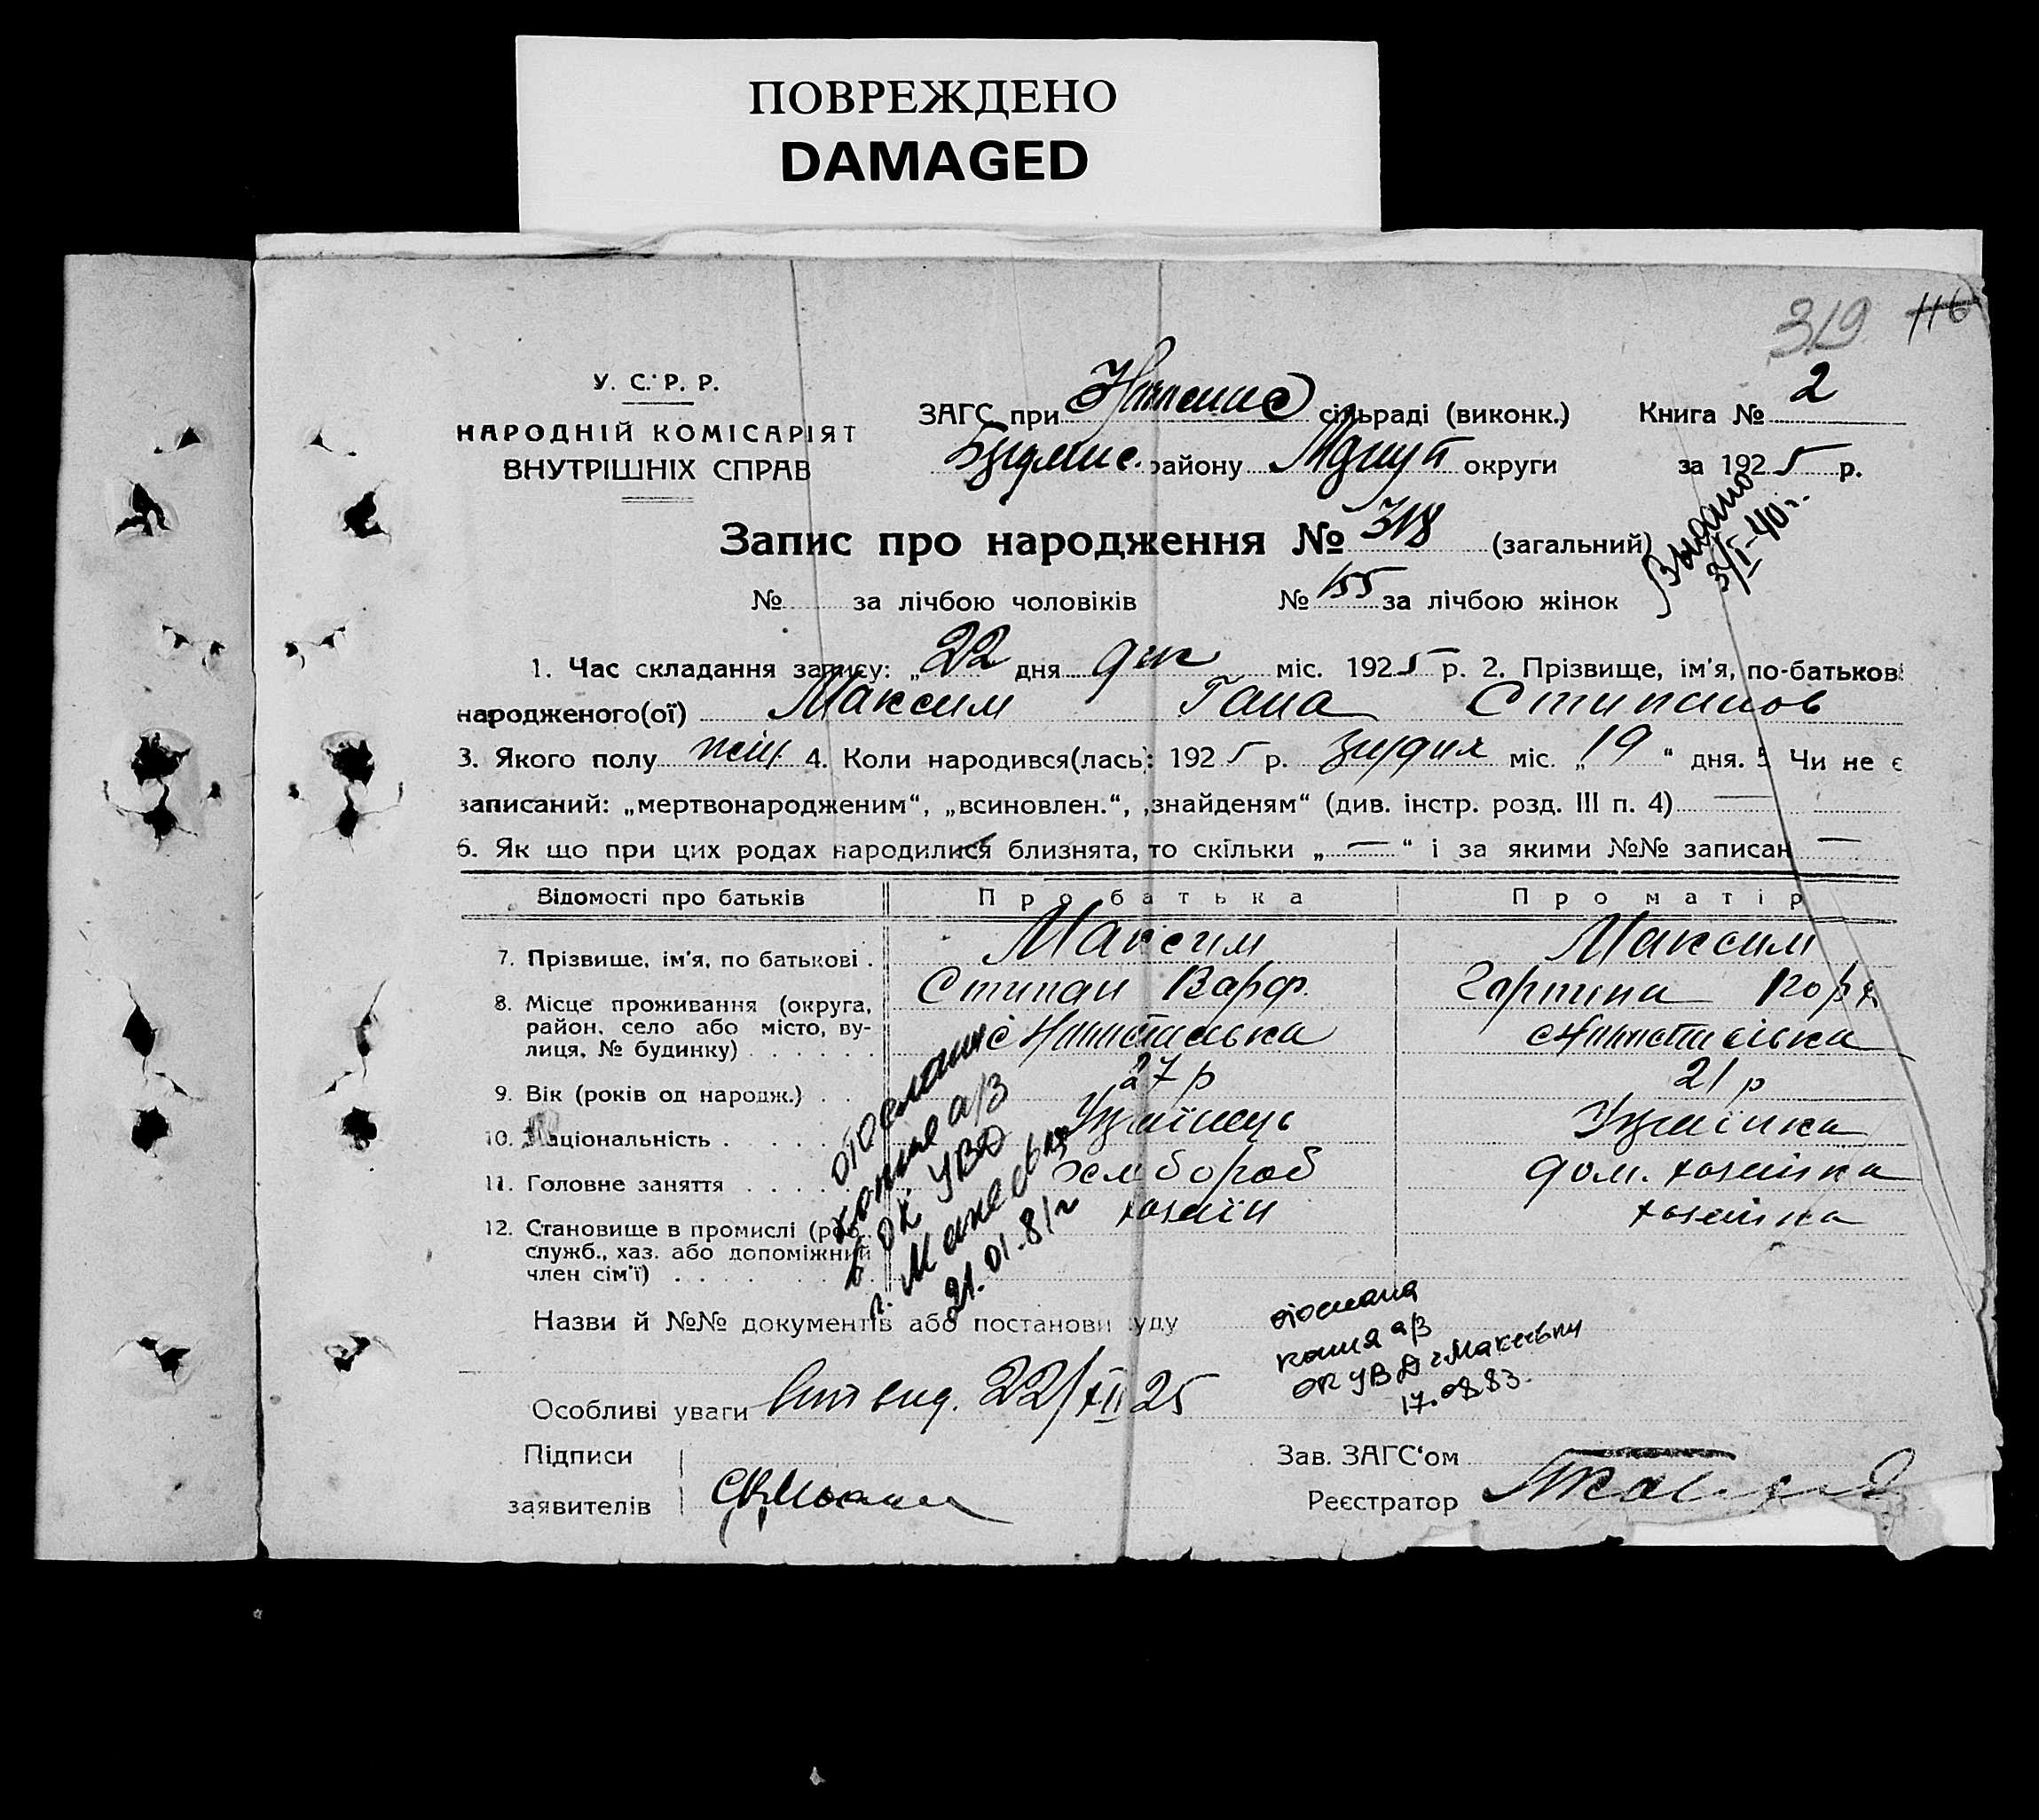 ПОВРЕЖДЕНО
DAMAGED
319 116
У. С. Р. Р.
НАРОДНІЙ КОМІСАРІЯТ
ВНУТРІШНІХ СПРАВ
ЗАГС при сільраді (виконк.) Книга № 2
району округи за 1925 р.
Запис про народження № 318 (загальний)
Видано
3/I-40 г.
№ за лічбою чоловіків № 155 за лічбою жінок
1. Час складання запису: „22 дня міс. 1925 р. 2. Прізвище, ім'я, по-батькові
народженого(ої) Максим Гана Стипанов
3. Якого полу жін. 4. Коли народився(лась): 1925 р. грудня міс. „19“ дня. 5 Чи не є
записаний: „мертвонародженим“, „всиновлен.“, „знайденям“ (див. інстр. розд. III п. 4) —
6. Як що при цих родах народилися близнята, то скільки „—“ і за якими №№ записан —
Відомості про батьків Про батька Про матір
7. Прізвище, ім'я, по батькові . Максим Максим
Стипан Варф. Гарпина
8. Місце проживання (округа, район, село або місто, вулиця, № будинку) . . . . . .
9. Вік (років од народж.) . . 27 р 21 р
10. Національність . . . . . Українець Українка
11. Головне заняття . . . . . хлібороб дом. хозяйка
12. Становище в промислі (роб., служб., хаз. або допоміжний член сім'ї) . . . . . . . хозяїн хозяйка
отослана
копия а/з
в ОК УВД
г. Макеевка
21.01.81 г
Назви й №№ документів або постанови суду
отослана
копия а/з
ОК УВД г Макеевки
17.08.83.
Особливі уваги 22/XII 25
Підписи
заявителів
Зав. ЗАГС'ом
Реєстратор